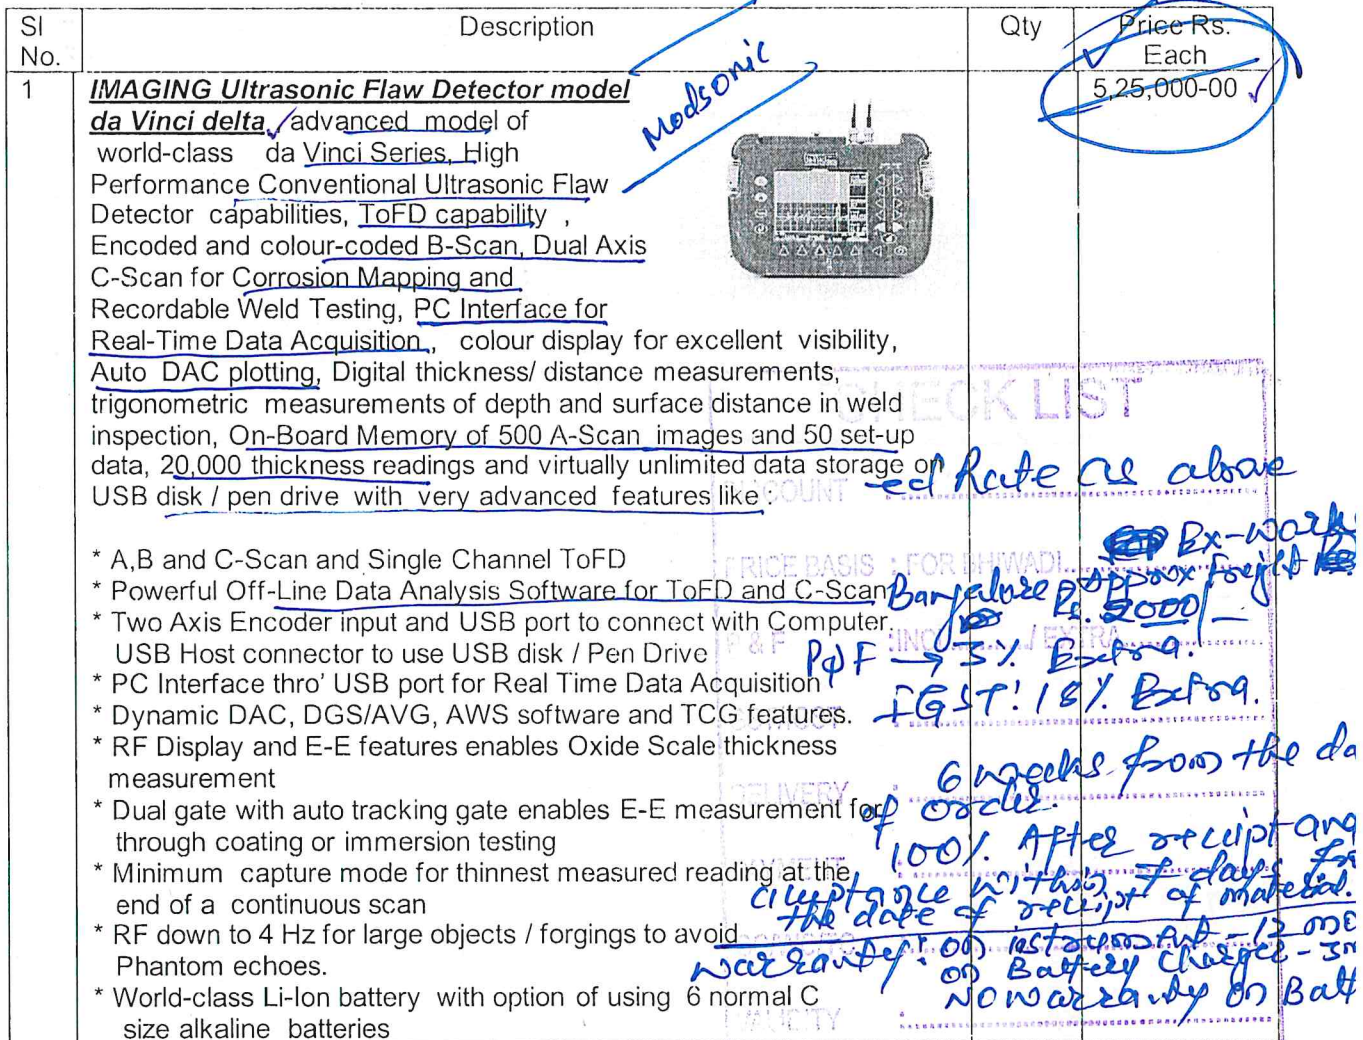 Sl No. Description Qty Price Rs. Each
1 IMAGING Ultrasonic Flaw Detector model 5,25,000-00
Modsonic
da Vinci delta, advanced model of
world-class da Vinci Series, High
Performance Conventional Ultrasonic Flaw
Detector capabilities, ToFD capability ,
Encoded and colour-coded B-Scan, Dual Axis
C-Scan for Corrosion Mapping and
Recordable Weld Testing, PC Interface for
Real-Time Data Acquisition , colour display for excellent visibility,
Auto DAC plotting, Digital thickness/ distance measurements,
trigonometric measurements of depth and surface distance in weld
inspection, On-Board Memory of 500 A-Scan images and 50 set-up
data, 20,000 thickness readings and virtually unlimited data storage on
USB disk / pen drive with very advanced features like :
* A,B and C-Scan and Single Channel ToFD
* Powerful Off-Line Data Analysis Software for ToFD and C-Scan
* Two Axis Encoder input and USB port to connect with Computer.
USB Host connector to use USB disk / Pen Drive
* PC Interface thro' USB port for Real Time Data Acquisition
* Dynamic DAC, DGS/AVG, AWS software and TCG features.
* RF Display and E-E features enables Oxide Scale thickness
measurement
* Dual gate with auto tracking gate enables E-E measurement for
through coating or immersion testing
* Minimum capture mode for thinnest measured reading at the
end of a continuous scan
* RF down to 4 Hz for large objects / forgings to avoid
Phantom echoes.
* World-class Li-Ion battery with option of using 6 normal C
size alkaline batteries
CHECK LIST
DISCOUNT
ed Rate as above
PRICE BASIS : FOR BHIWADI
Ex-work
Bangalore approx freight
Rs. 2000/-
P & F : INC / EXTRA
P&F → 3% Extra.
IGST: 18% Extra.
DELIVERY
6 weeks from the da
of order.
PAYMENT
100% After receipt and
acceptance within 7 days
the date of receipt of material.
Warranty: on instrument - 12 mo
on Battery Charger - 3m
No warranty on Batt
VALIDITY